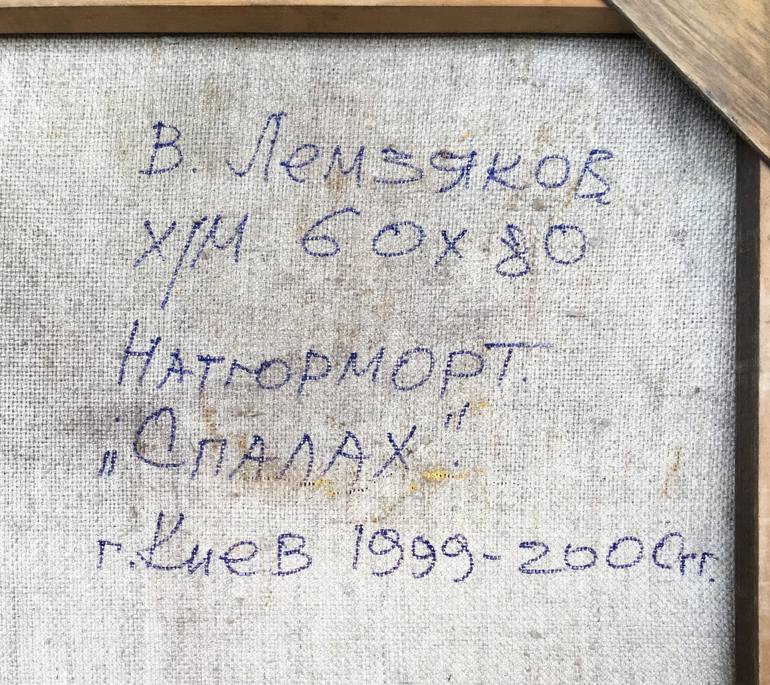 В. Лемзяков
х/м 60х80
Натюрморт.
„Спалах".
г. Киев 1999-2000гг.